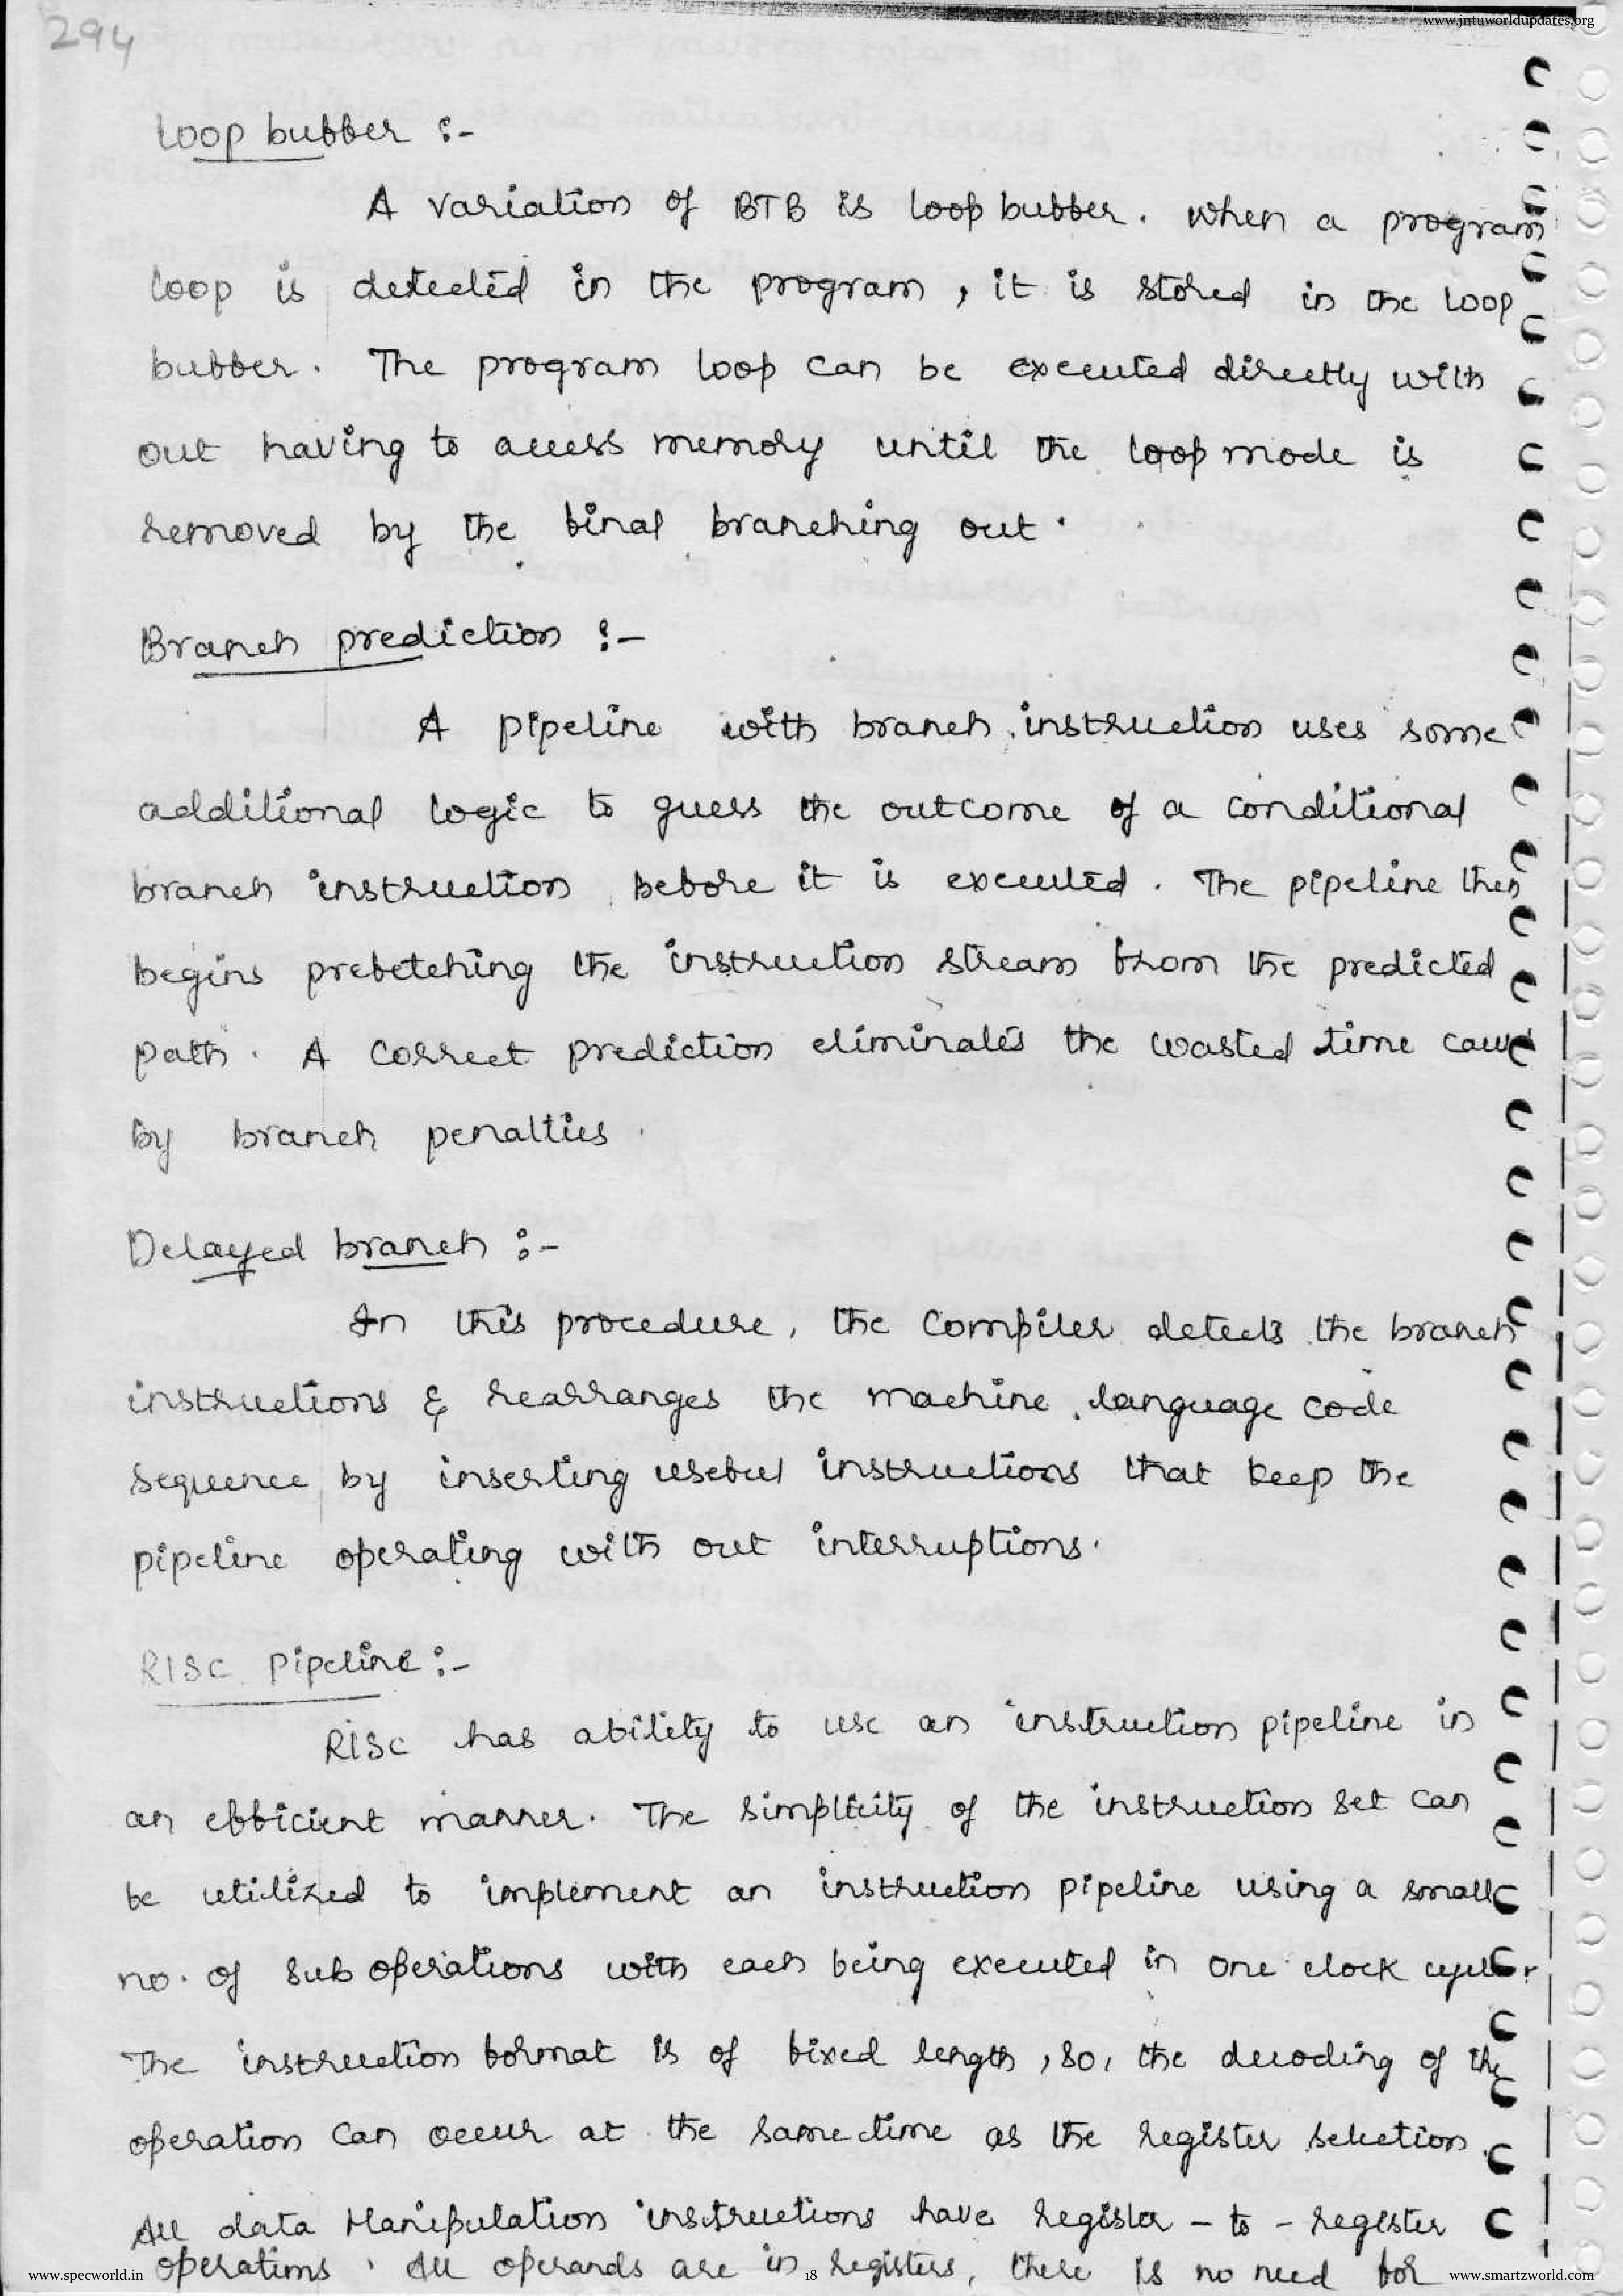 www.jntuworldupdates.org
294
Loop bubber :-
A variation of BTB is loop bubber. When a program
loop is detected in the program, it is stored in the loop
bubber. The program loop can be executed directly with
out having to access memory until the loop mode is
removed by the binal branching out.
Branch prediction :-
A pipeline with branch instruction uses some
additional logic to guess the outcome of a conditional
branch instruction bebore it is executed. The pipeline then
begins prebetching the instruction stream brom the predicted
path. A correct prediction eliminates the wasted time
by branch penalties.
Delayed branch :-
In this procedure, the compiler detects the branch
instructions & rearranges the machine language code
sequence by inserting usebul instructions that keep the
pipeline operating with out interruptions.
RISC Pipeline :-
RISC has ability to use an instruction pipeline in
an ebbicient manner. The simplicity of the instruction set can
be utilized to implement an instruction pipeline using a small
no. of sub operations with each being executed in one clock
The instruction bormat is of bixed length, so, the decoding of the
operation can occur at the same time as the register selection.
All data Manipulation instructions have register - to - register
operations. All operands are in registers, there is no need bor
www.specworld.in
18
www.smartzworld.com